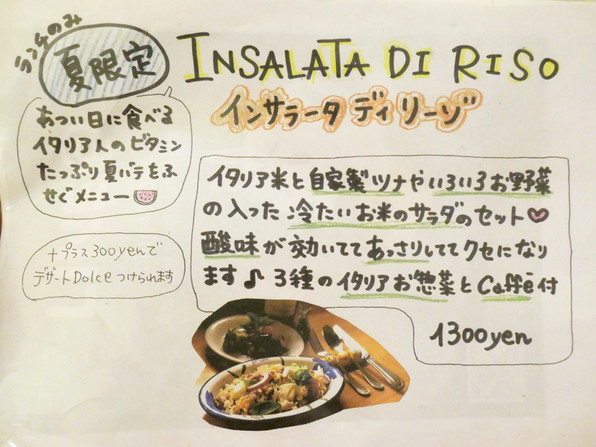 ランチのみ
夏限定
INSALATA DI RISO
インサラータ ディ リーゾ
あつい日に食べる
イタリア人のビタミン
たっぷり夏バテをふ
せぐメニュー
+プラス300yenで
デザートDolceつけられます
イタリア米と自家製ツナやいろいろお野菜
の入った冷たいお米のサラダのセット♡
酸味が効いててあっさりしててクセになり
ます♪ 3種のイタリアお惣菜とCaffè付
1300yen